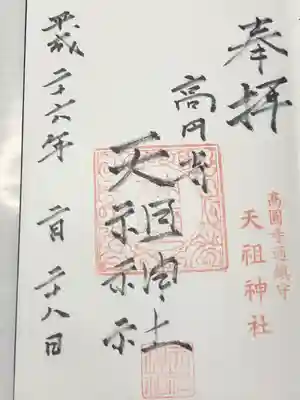 奉拝
高圓寺
天祖神社
高円寺
天祖神社
平成二十六年 二月二十八日